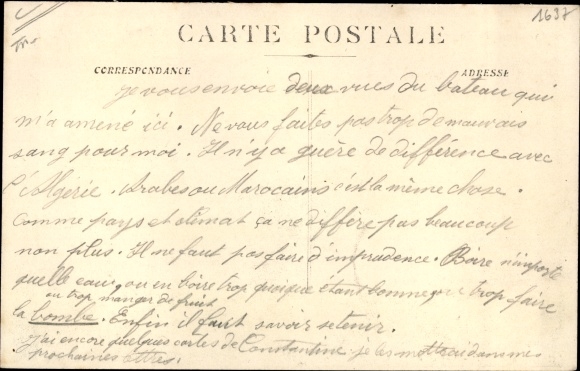 1697
CARTE POSTALE
CORRESPONDANCE
ADRESSE
Je vous envoie deux vues du bateau qui
m'a amené ici. Ne vous faites pas trop de mauvais
sang pour moi. Il n'y a guère de différence avec
l'Algérie. Arabes ou Marocains c'est la même chose.
Comme pays et climat ça ne diffère pas beaucoup
non plus. Il ne faut pas faire d'imprudence. Boire n'importe
quelle eau, ou en boire trop quoique étant bonne, trop faire
ou trop manger de fruit
la bombe. Enfin il faut savoir se tenir.
J'ai encore quelques cartes de Constantine je les mettrai dans mes
prochaines lettres.